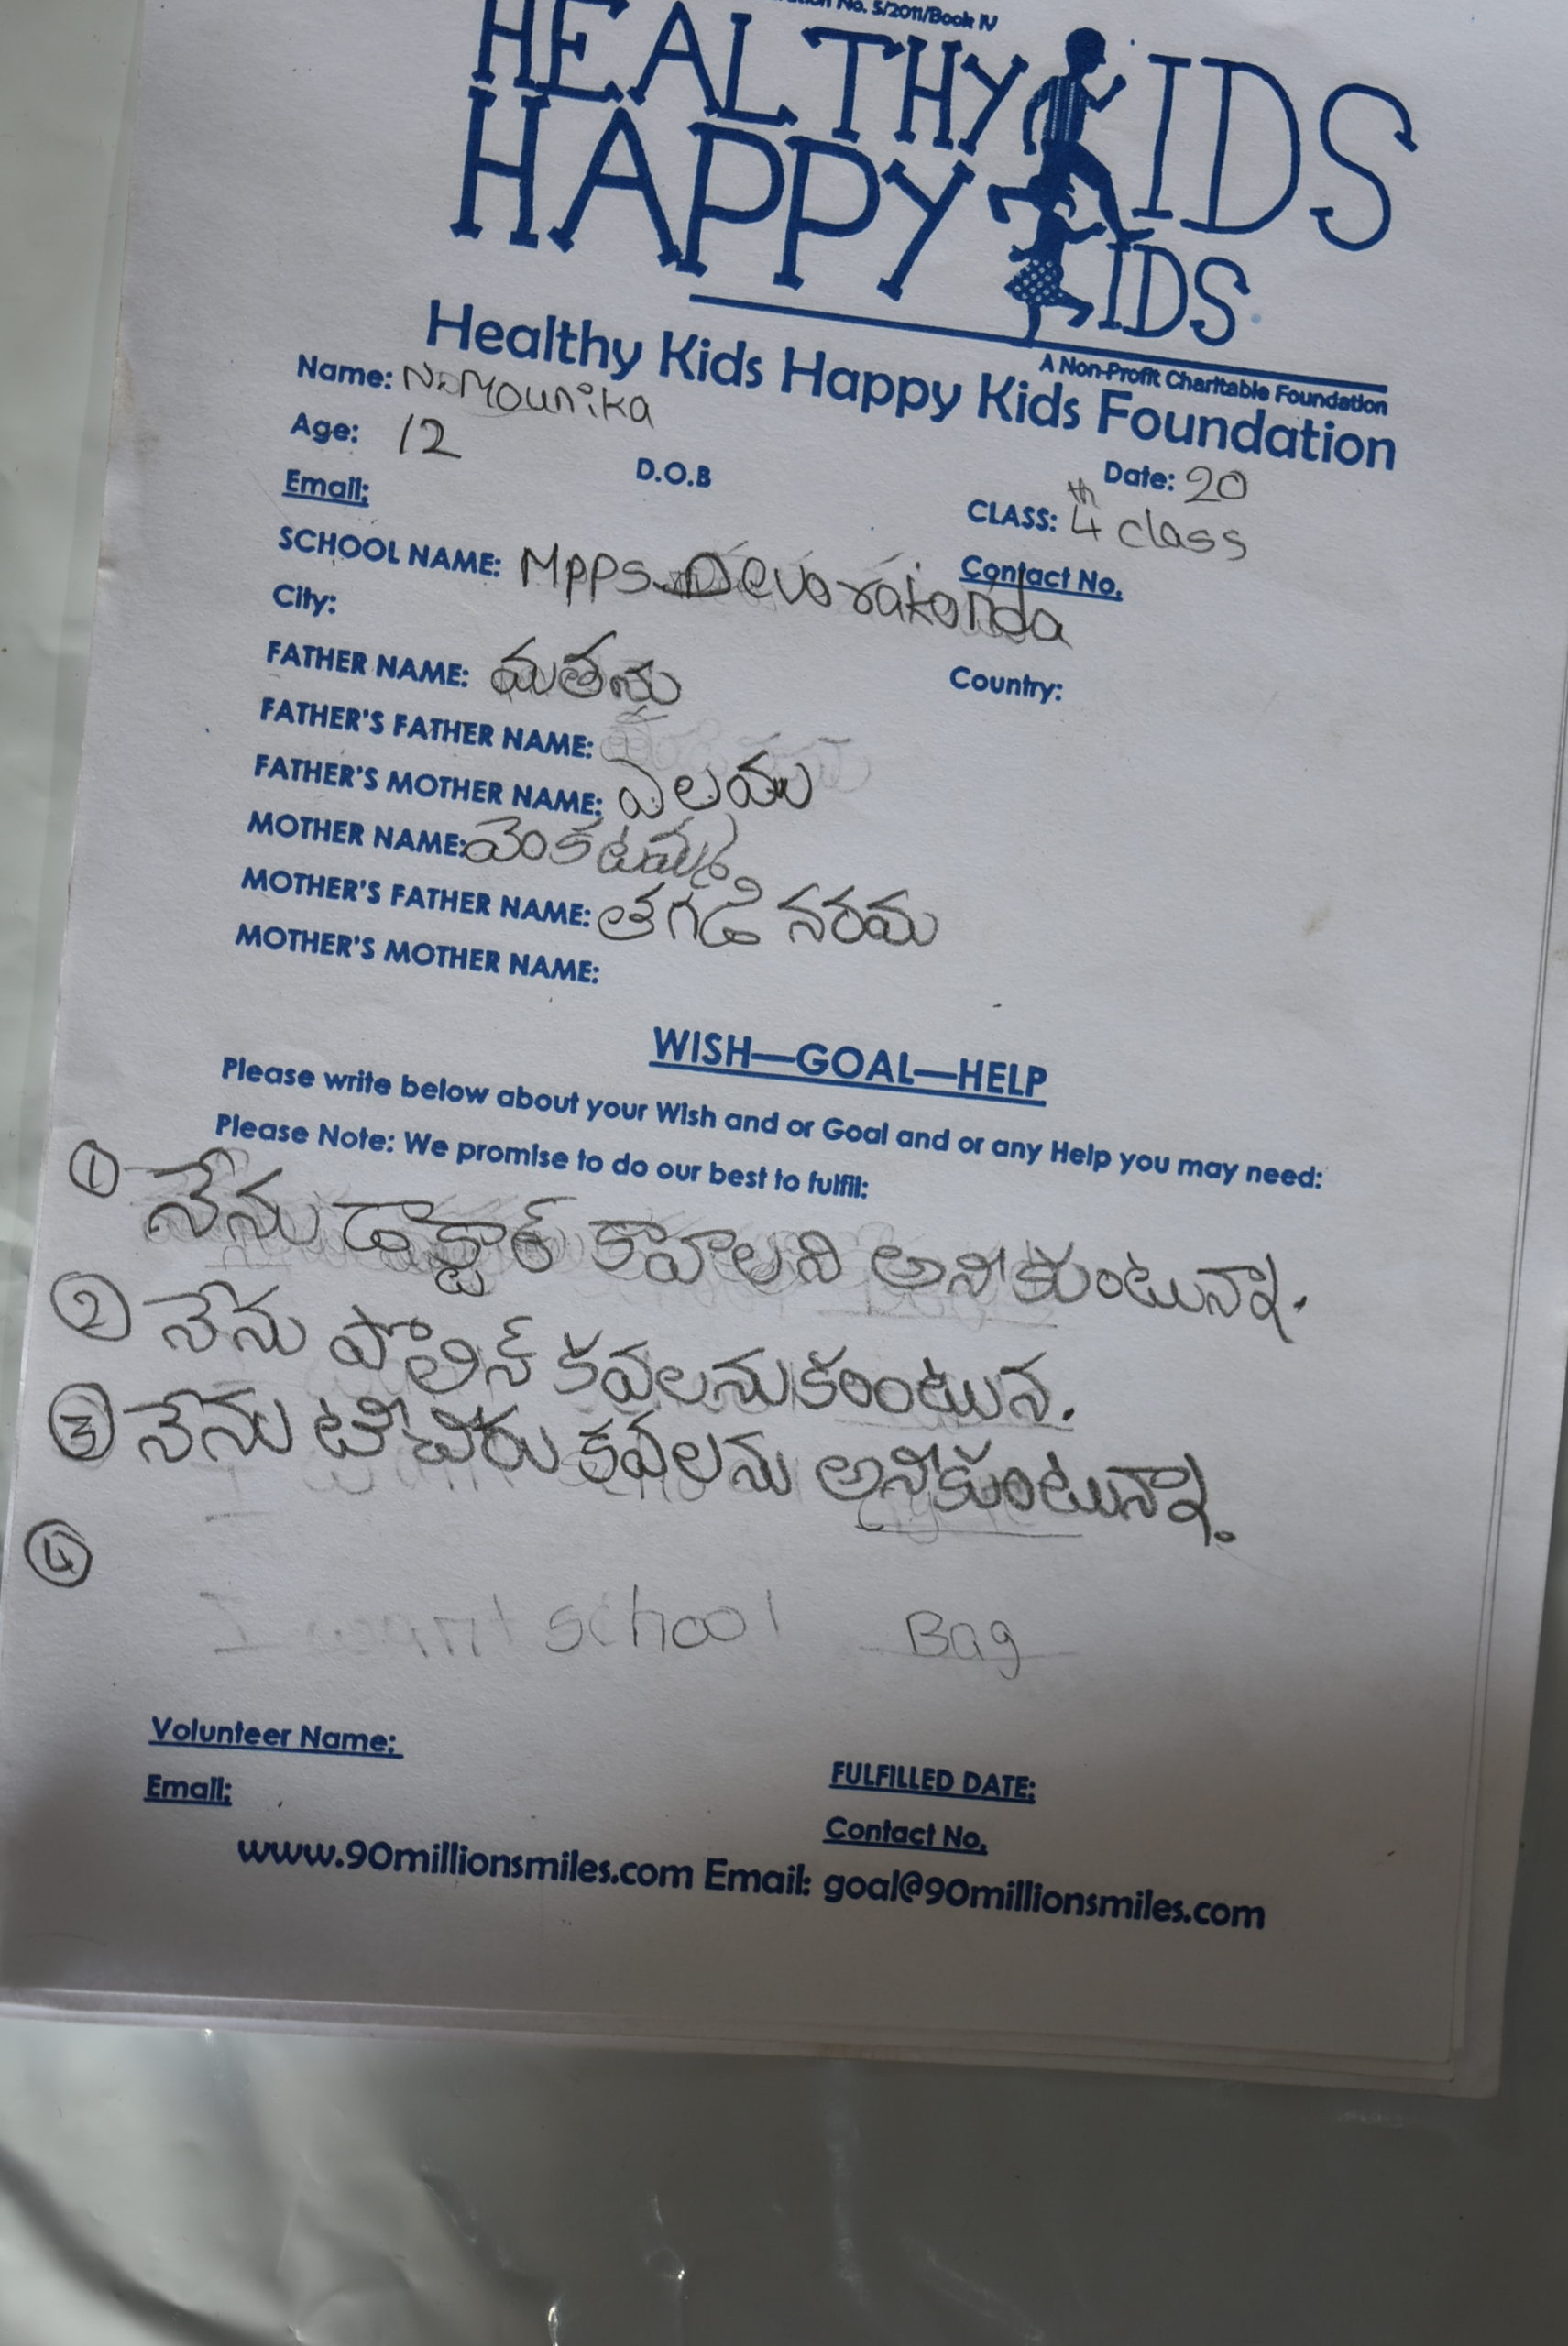 No. 5/2011/Book IV
HEALTHY KIDS
HAPPY KIDS
A Non-Profit Charitable Foundation
Healthy Kids Happy Kids Foundation
Name: N. Mounika
Date: 20
Age: 12 D.O.B CLASS: 4th class
Email: Contact No.
SCHOOL NAME: MPPS Devarakonda
City: Country:
FATHER NAME: మతను
FATHER'S FATHER NAME:
FATHER'S MOTHER NAME: ఎలమ
MOTHER NAME: వెంకటమ్మ
MOTHER'S FATHER NAME: తగడి నరమ
MOTHER'S MOTHER NAME:
WISH—GOAL—HELP
Please write below about your Wish and or Goal and or any Help you may need:
Please Note: We promise to do our best to fulfil:
① నేను డాక్టార్ కావాలని అనీకుంటున్నా.
② నేను పొలిస్ కవలనుకంటున.
③ నేను టీచీరు కవలను అనీకుంటున్నా.
④
I want school Bag
Volunteer Name:
FULFILLED DATE:
Email:
Contact No.
www.90millionsmiles.com Email: goal@90millionsmiles.com